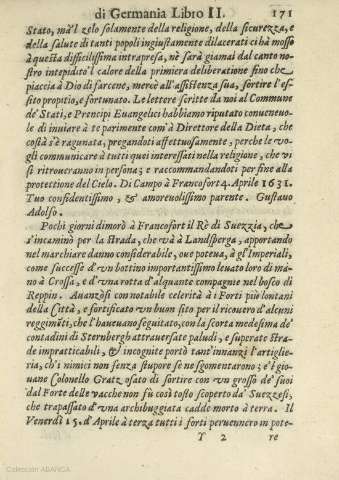 di Germania Libro II. 171
Stato, mà'l zelo solamente della religione, della sicurezza, e
della salute di tanti popoli ingiustamente dilacerati ci hà mosso
à questa difficilissima intrapresa, nè sarà giamai dal canto no-
stro intepidito'l calore della primiera deliberatione fino che
piaccia à Dio di farcene, mercè all'assistenza sua, sortire l'es-
sito propitio, e fortunato. Le lettere scritte da noi al Commune
de' Stati, e Prencipi Euangelici habbiamo riputato conueneuo-
le di inuiare à te parimente com'à Direttore della Dieta, che
costà s'è ragunata, pregandoti affettuosamente, perche le vo-
gli communicare à tutti quei interessati nella religione, che vi
si ritroueranno in persona; e raccommandandoti per fine alla
protettione del Cielo. Di Campo à Francofort 4. Aprile 1631.
Tuo confidentissimo, & amoreuolissimo parente. Gustauo
Adolfo.
Pochi giorni dimorò à Francofort il Rè di Suezzia, che
s'incaminò per la strada, che và à Landsperga, apportando
nel marchiare danno considerabile, oue poteua, à gl'Imperiali,
come successe d'vn bottino importantissimo leuato loro di ma-
no à Crossa, e d'vna rotta d'alquante compagnie nel bosco di
Reppin. Auanzòsi con notabile celerità à i Forti più lontani
della Città, e fortificato vn buon sito per il ricouero d'alcuni
reggimẽti, che l'haueuano seguitato, con la scorta medesima de'
contadini di Sternbergh attrauersate paludi, e superate stra-
de impratticabili, & incognite portò tant'innanzi l'artiglie-
ria, ch'i nimici non senza stupore se ne sgomentarono; e'l gio-
uane Colonello Gratz osato di sortire con vn grosso de' suoi
dal Forte delle vacche non fù così tosto scoperto da' Suezzesi,
che trapassato d'vna archibuggiata cadde morto à terra. Il
Venerdì 15. d'Aprile à terza tutti i forti peruennero in pote-
Y 2 re
Colección ABANCA